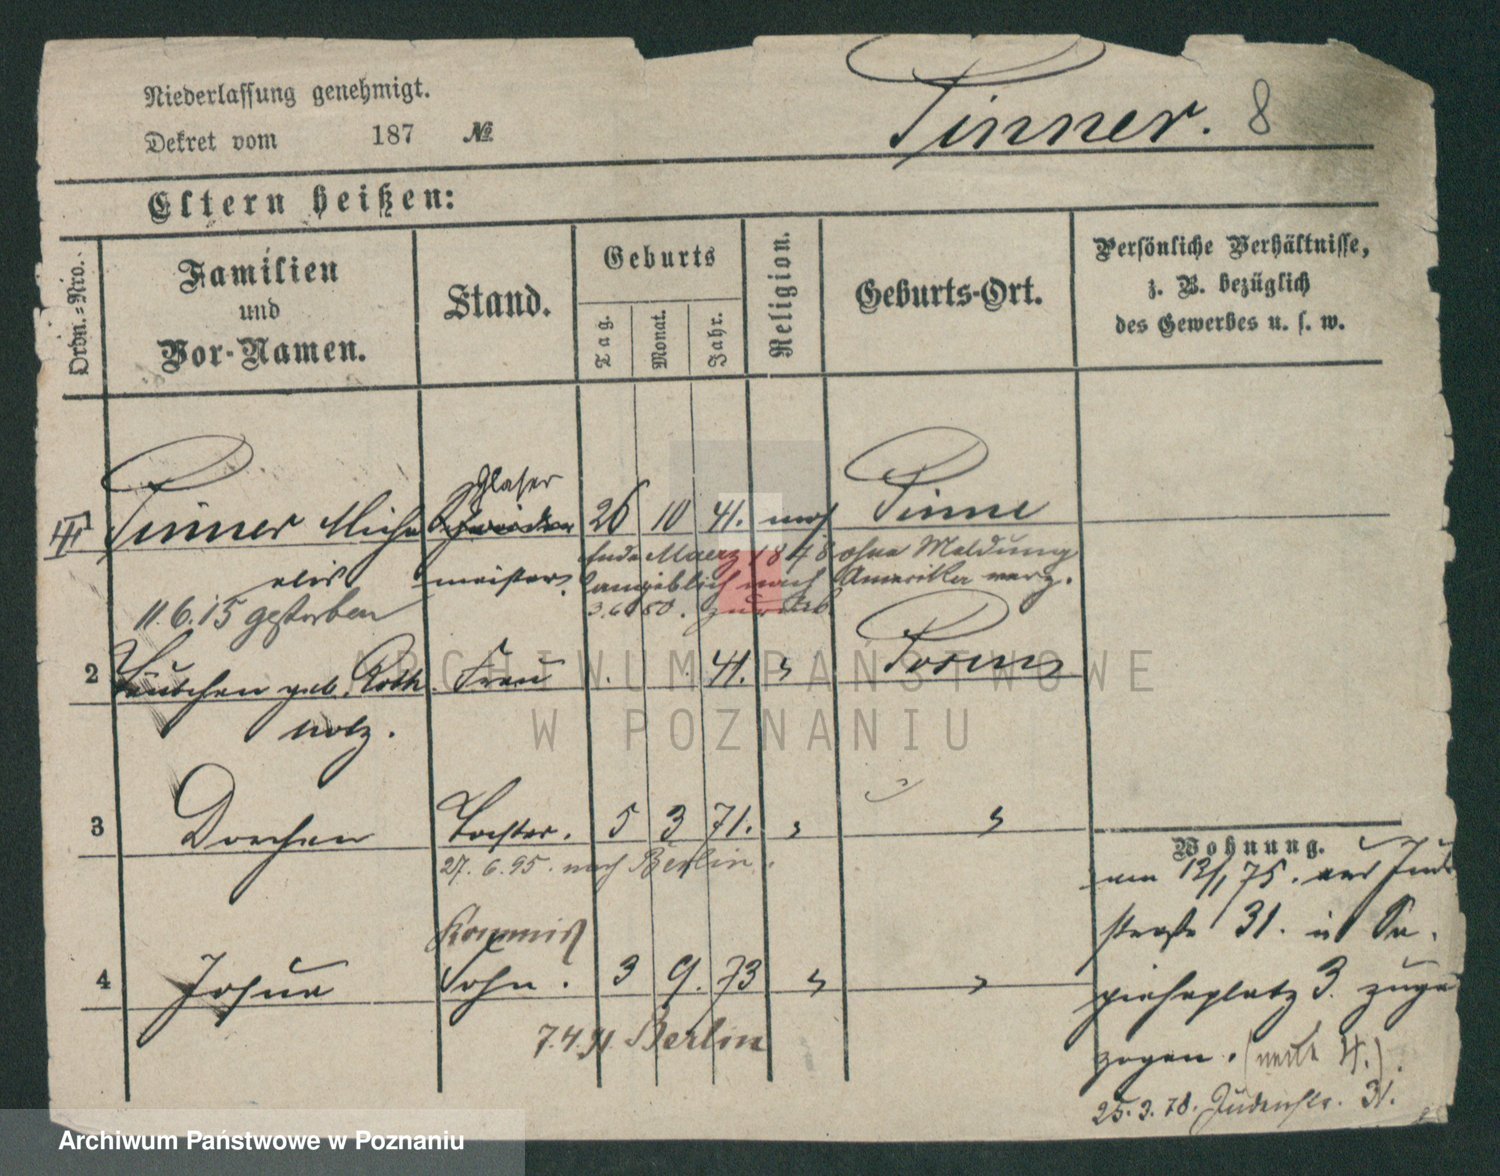 Niederlassung genehmigt.
Dekret vom 187 №
Pinner. 8
Eltern heißen:
Ordn.-Nro.
Familien und Vor-Namen.
Stand.
Geburts
Tag.
Monat.
Jahr.
Religion.
Geburts-Ort.
Persönliche Verhältnisse,
z. B. bezüglich
des Gewerbes u. s. w.
Glaser
Pinner Micha 26 10 41. mos Pinne
elis meister.
Ende Maerz 1878 ohne Meldung
angeblich nach Amerika verz.
11.6.15 gestorben
3.6.80. zurück
2 geb. Roth Frau 41. " Posen
holz.
3 Dorchen Tochter. 5 3 71. " "
27.6.95. nach Berlin.
Kommis
4 Josua Sohn. 3 9. 73 " "
7.4.91. Berlin
Wohnung.
am 12/1 75. aus Jud
straße 31. n Sa.
piehaplatz 3. zuge
zogen.
25.3.78. Judenstr. 31.
ARCHIWUM PAŃSTWOWE
W POZNANIU
Archiwum Państwowe w Poznaniu